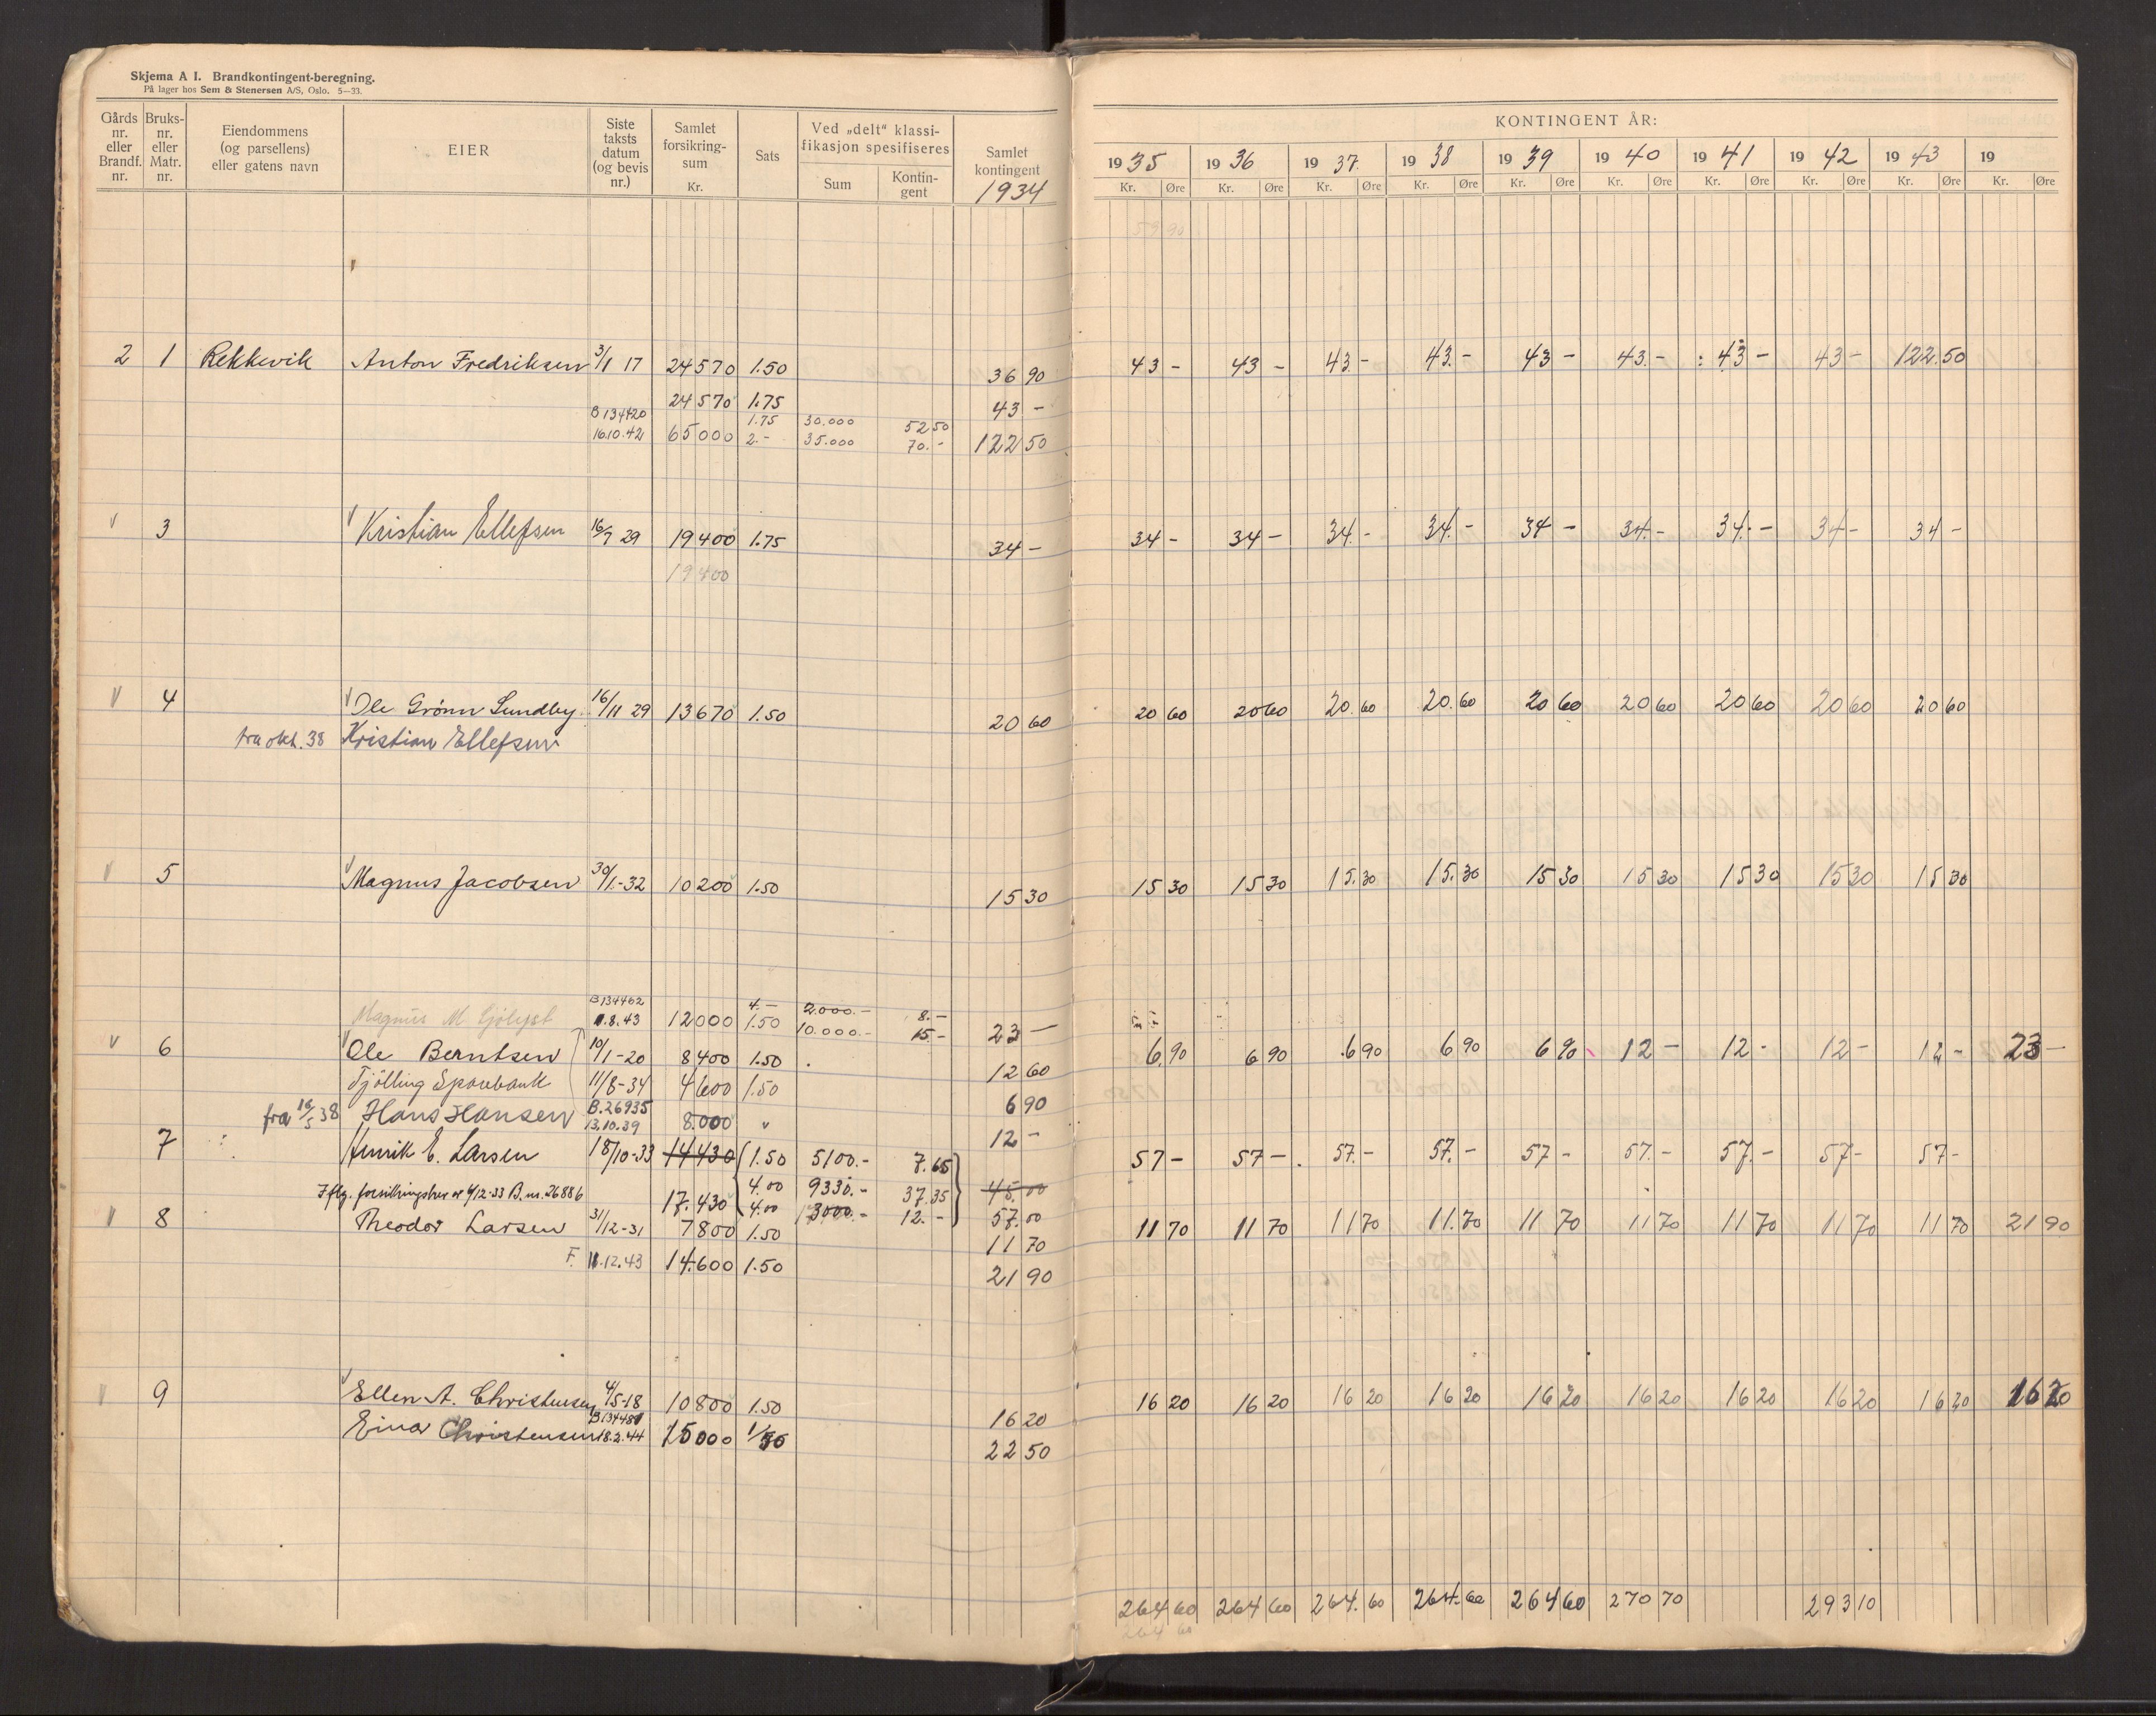 Skjema A I. Brandkontingent-beregning.
På lager hos Sem & Stenersen A/S, Oslo. 5—33.
Gårds nr. eller Brandf. nr.
Bruks- nr. eller Matr. nr.
Eiendommens (og parsellens) eller gatens navn
EIER
Siste taksts datum (og bevis nr.)
Samlet forsikring- sum Kr.
Sats
Ved „delt" klassi- fikasjon spesifiseres
Sum
Kontin- gent
Samlet kontingent 1934
KONTINGENT ÅR:
1935 1936 1937. 1938 1939 1940 1941 1942 1943 19
Kr. Øre Kr. Øre Kr. Øre Kr. Øre Kr. Øre Kr. Øre Kr. Øre Kr. Øre Kr. Øre Kr. Øre
59 90
2 1 Rekkevik Anton Fredriksen 3/1 17 24570 1.50 36 90 43 - 43 - 43 - 43.- 43 - 43.- : 43 - 43 - 122.50
24570 1.75 43 -
B 134420 1.75 30.000 52 50
16.10.42 65000 2.- 35.000 70.- 122 50
V 3 V Kristian Ellefsen 16/7 29 19400 1.75 34 - 34 - 34 - 34.- 34.- 34 - 34.- 34.- 34 - 34 -
19400
V 4 V Ole Grönn Sundby 16/11 29 13670 1.50 20 60 20 60 20 60 20.60 20.60 20 60 20 60 20 60 20 60 20 60
fra okt. 38 Kristian Ellefsen
V 5 V Magnus Jacobsen 30/1.-32 10200 1.50 15 30 15 30 15 30 15.30 15.30 15 30 15 30 15 30 15 30 15 30
B 134462 4.- 2.000.- 8.-
Magnus M. 11.8.43 12000 1.50 10.000.- 15.- 23 -
V 6 V Ole Berntsen 10/1-20 8400 1.50 12 60 6.90 6 90 6 90 6 90 6 90 12 - 12 - 12 - 12 - 23 -
Tjölling Sparebank 11/8-34 4600 1.50 6 90
fra 16/5 38 Hans Hansen B.26935
13.10.39 8.000 " 12 -
7 Henrik E. Larsen 18/10-33 14430 1.50 5100.- 7.65 57 - 57 - 57.- 57.- 57 - 57.- 57.- 57 - 57 -
4.00 9330.- 37.35 45.00
Iflg. forsikringsbev av 4/12-33 B. nr. 26886 17.430 4.00 3000.- 12.- 57.00
V 8 Theodor Larsen 31/12-31 7800 1.50 11 70 11 70 11 70 11 70 11.70 11 70 11 70 11 70 11 70 11 70 21 90
F. 11.12.43 14.600 1.50 21 90
V 9 V Ellen A. Christensen 4/5-18 10800 1.50 16 20 16 20 16 20 16 20 16 20 16 20 16 20 16 20 16 20 16 20 16 20
Einar Christensen B134481 18.2.44 15000 1/50 22 50
264 60 264 60 264.60 264.60 264 60 270 70 293 10
264 60